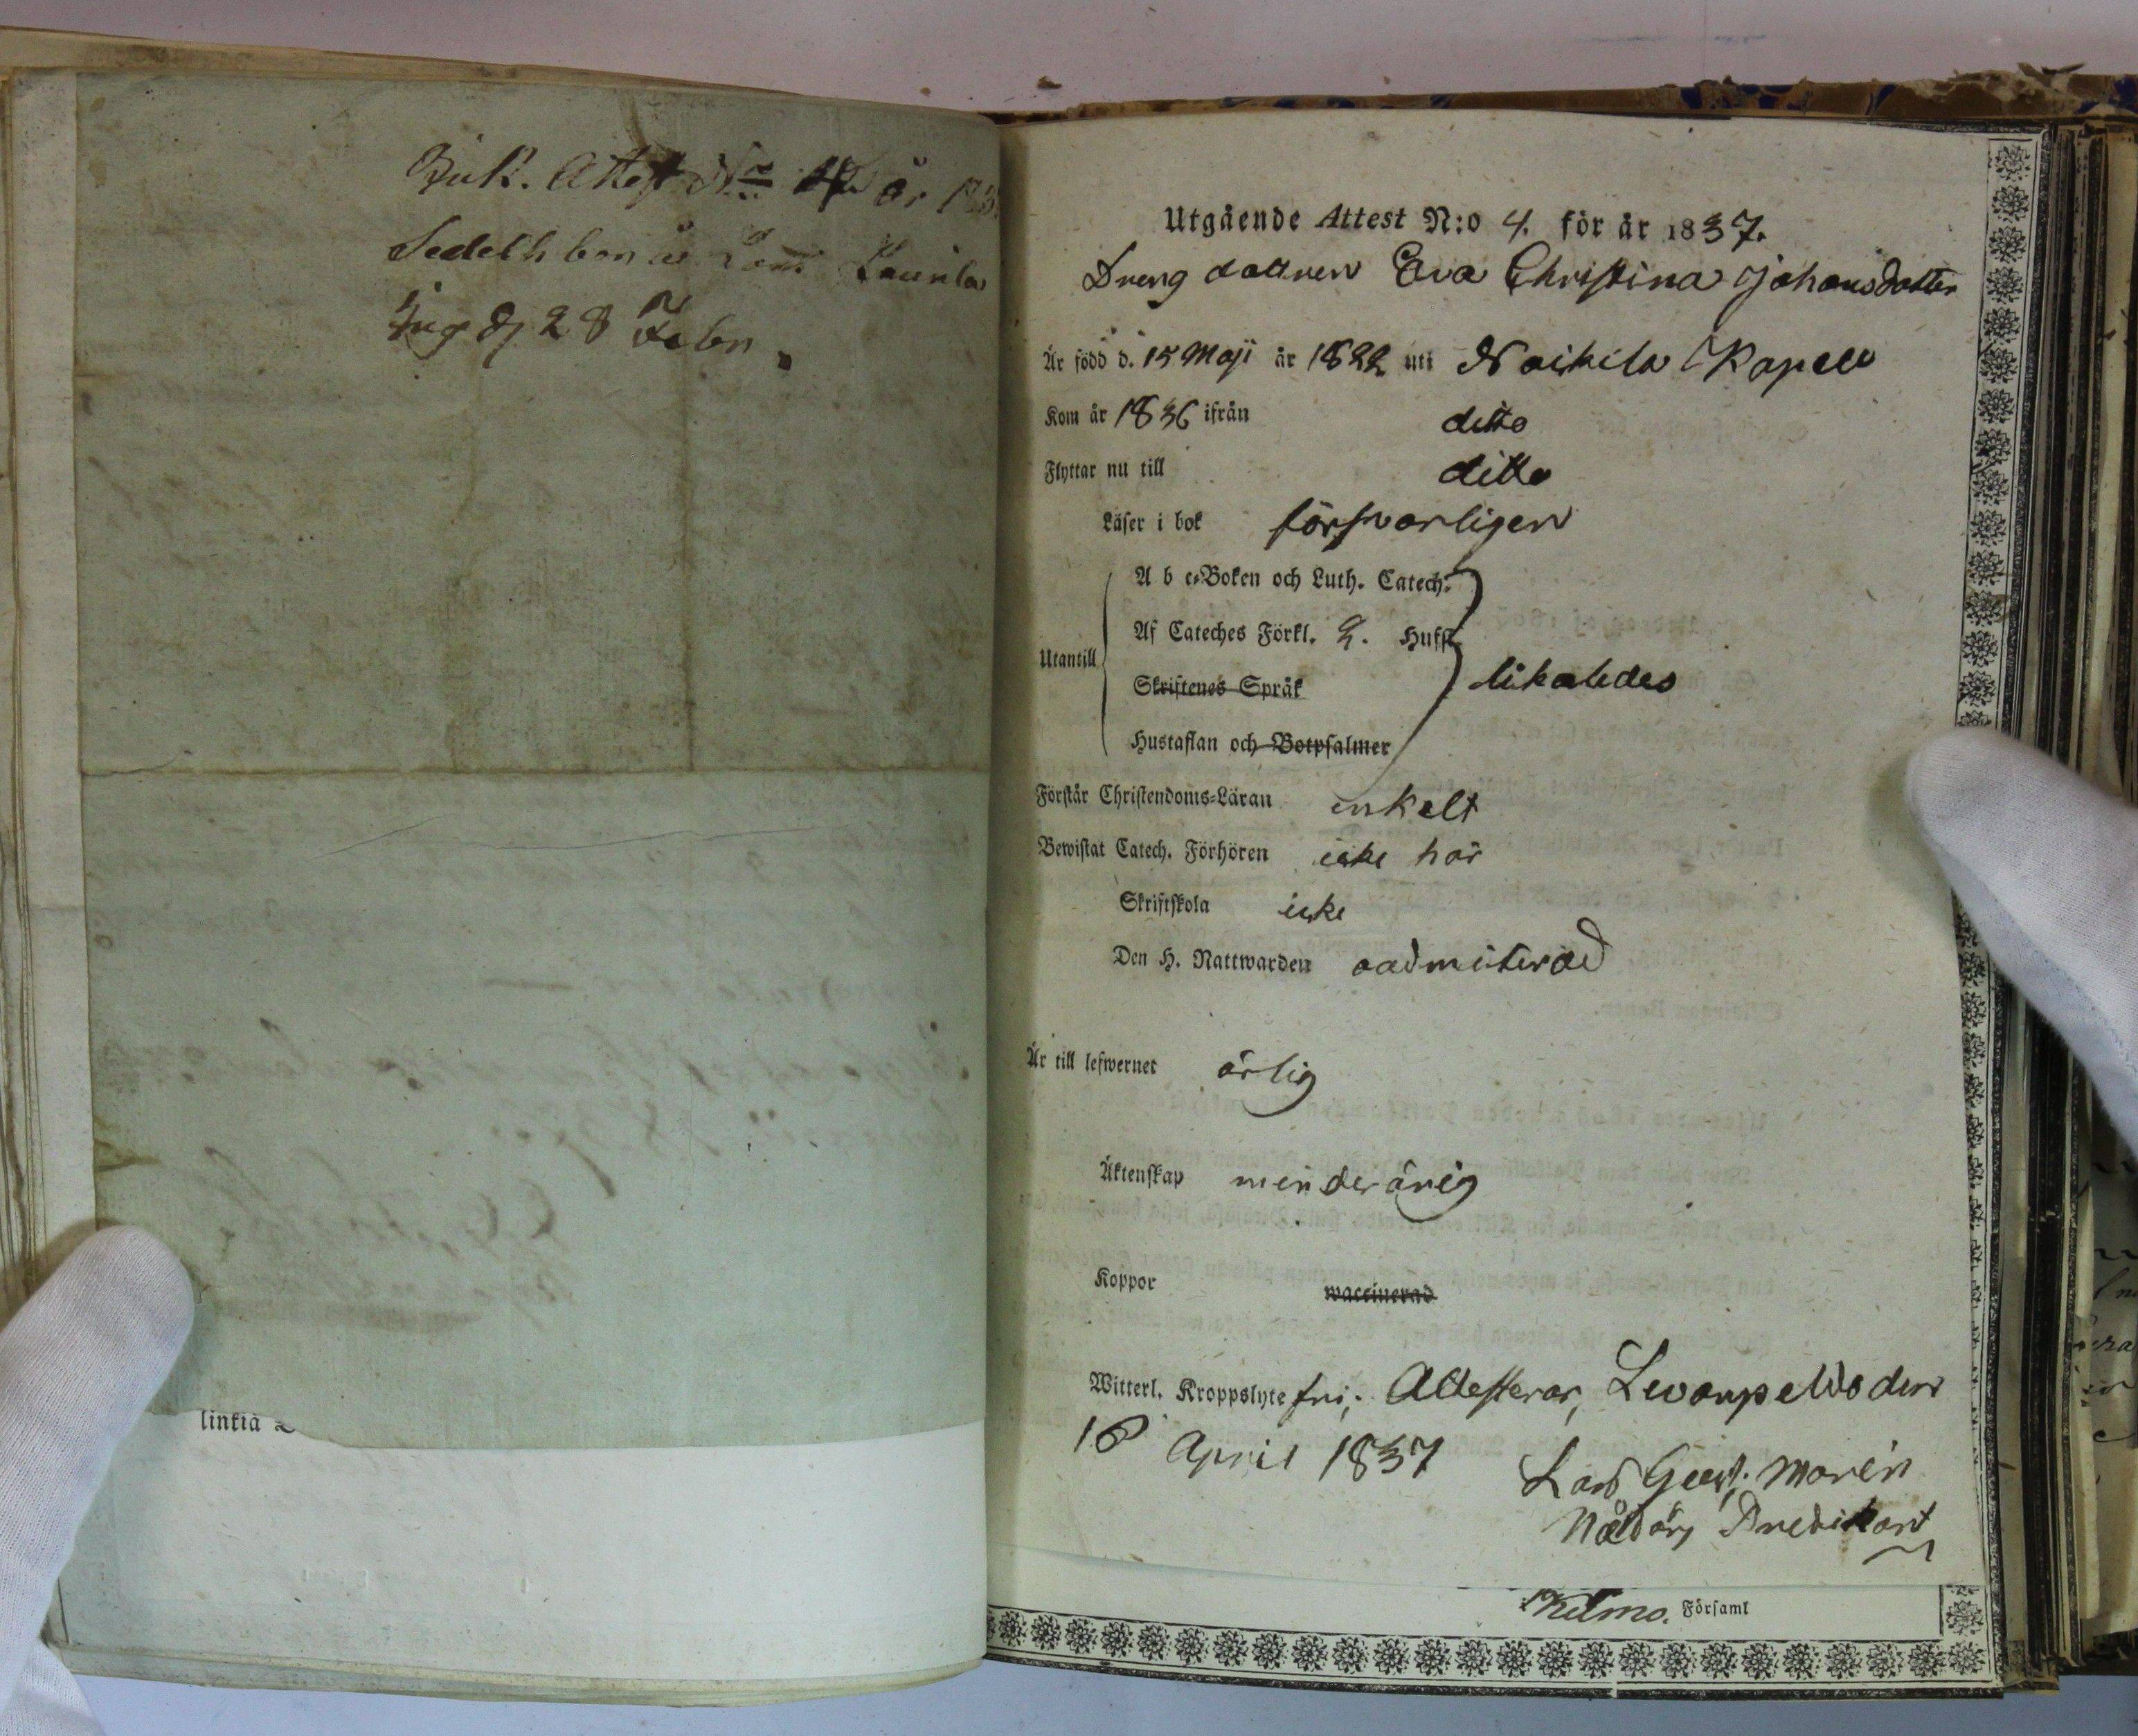 Attest N:o år
d 28 Febr.
linkia
Utgående Attest N:o 4. för år 1837.
Dreng dottren Eva Christina Johansdotter
Är född d. 15 Maji år 1822 uti Noikila Kapell
Kom år 1836 ifrån ditto
Flyttar nu till ditto
Läser i bok försvarligen
A b c-Boken och Luth. Catech.
Af Cateches Förkl. 2. Hufst
Utantill
Skriftenes Språk
likaledes
Hustaflan och Botpsalmer
Förstår Christendoms-Läran enkelt
Bewistat Catech. Förhören icke här
Skriftskola icke
Den H. Nattwarden oadmiterad
Är till lefwernet ärlig
Äktenskap minderårig
Koppor waccinerad
Witterl. Kroppslyte fri; Attesterar, Levanpelto den
16 April 1837
Lars Gust. Morén
Nådårs Predikant
Församl